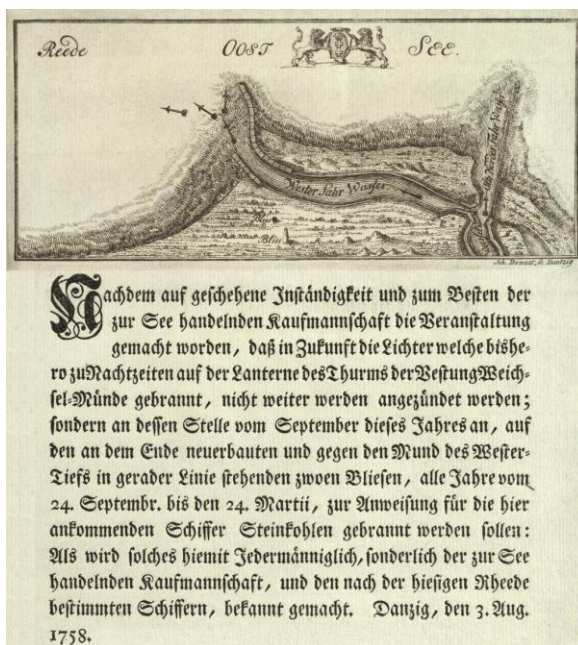 Reede
OOST SEE.
Wester Fahr Wasser
Blüs
Nachdem auf geschehene Inständigkeit und zum Besten der
zur See handelnden Kaufmannschaft die Veranstaltung
gemacht worden, daß in Zukunft die Lichter welche bishe-
ro zu Nachtzeiten auf der Lanterne des Thurms der Vestung Weich-
sel-Münde gebrannt, nicht weiter werden angezündet werden;
sondern an dessen Stelle vom September dieses Jahres an, auf
den an dem Ende neuerbauten und gegen den Mund des Wester-
Tiefs in gerader Linie stehenden zwoen Bliesen, alle Jahre vom
24. Septembr. bis den 24. Martii, zur Anweisung für die hier
ankommenden Schiffer Steinkohlen gebrannt werden sollen:
Als wird solches hiemit Jedermänniglich, sonderlich der zur See
handelnden Kaufmannschaft, und den nach der hiesigen Rheede
bestimmten Schiffern, bekannt gemacht. Danzig, den 3. Aug.
1758.